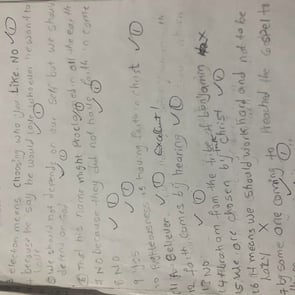 3 election means choosing who you like. NO
4 because he say he would love whoever he want to love
5 We should not depends on our self but we should depend on God
6 that his name might proclaimed in all the earth
7 No because they did not have faith in christ
8 NO
9 yes
10 Righteousness is having Faith in Christ
11 A Believer Excellent!
12 faith comes by hearing
13 NO
14 Abraham from the tribe of benjamin
15 We are chosen by Christ
16 it means we should work hard and not to be lazy
17 by some one coming to preached the Gospel to